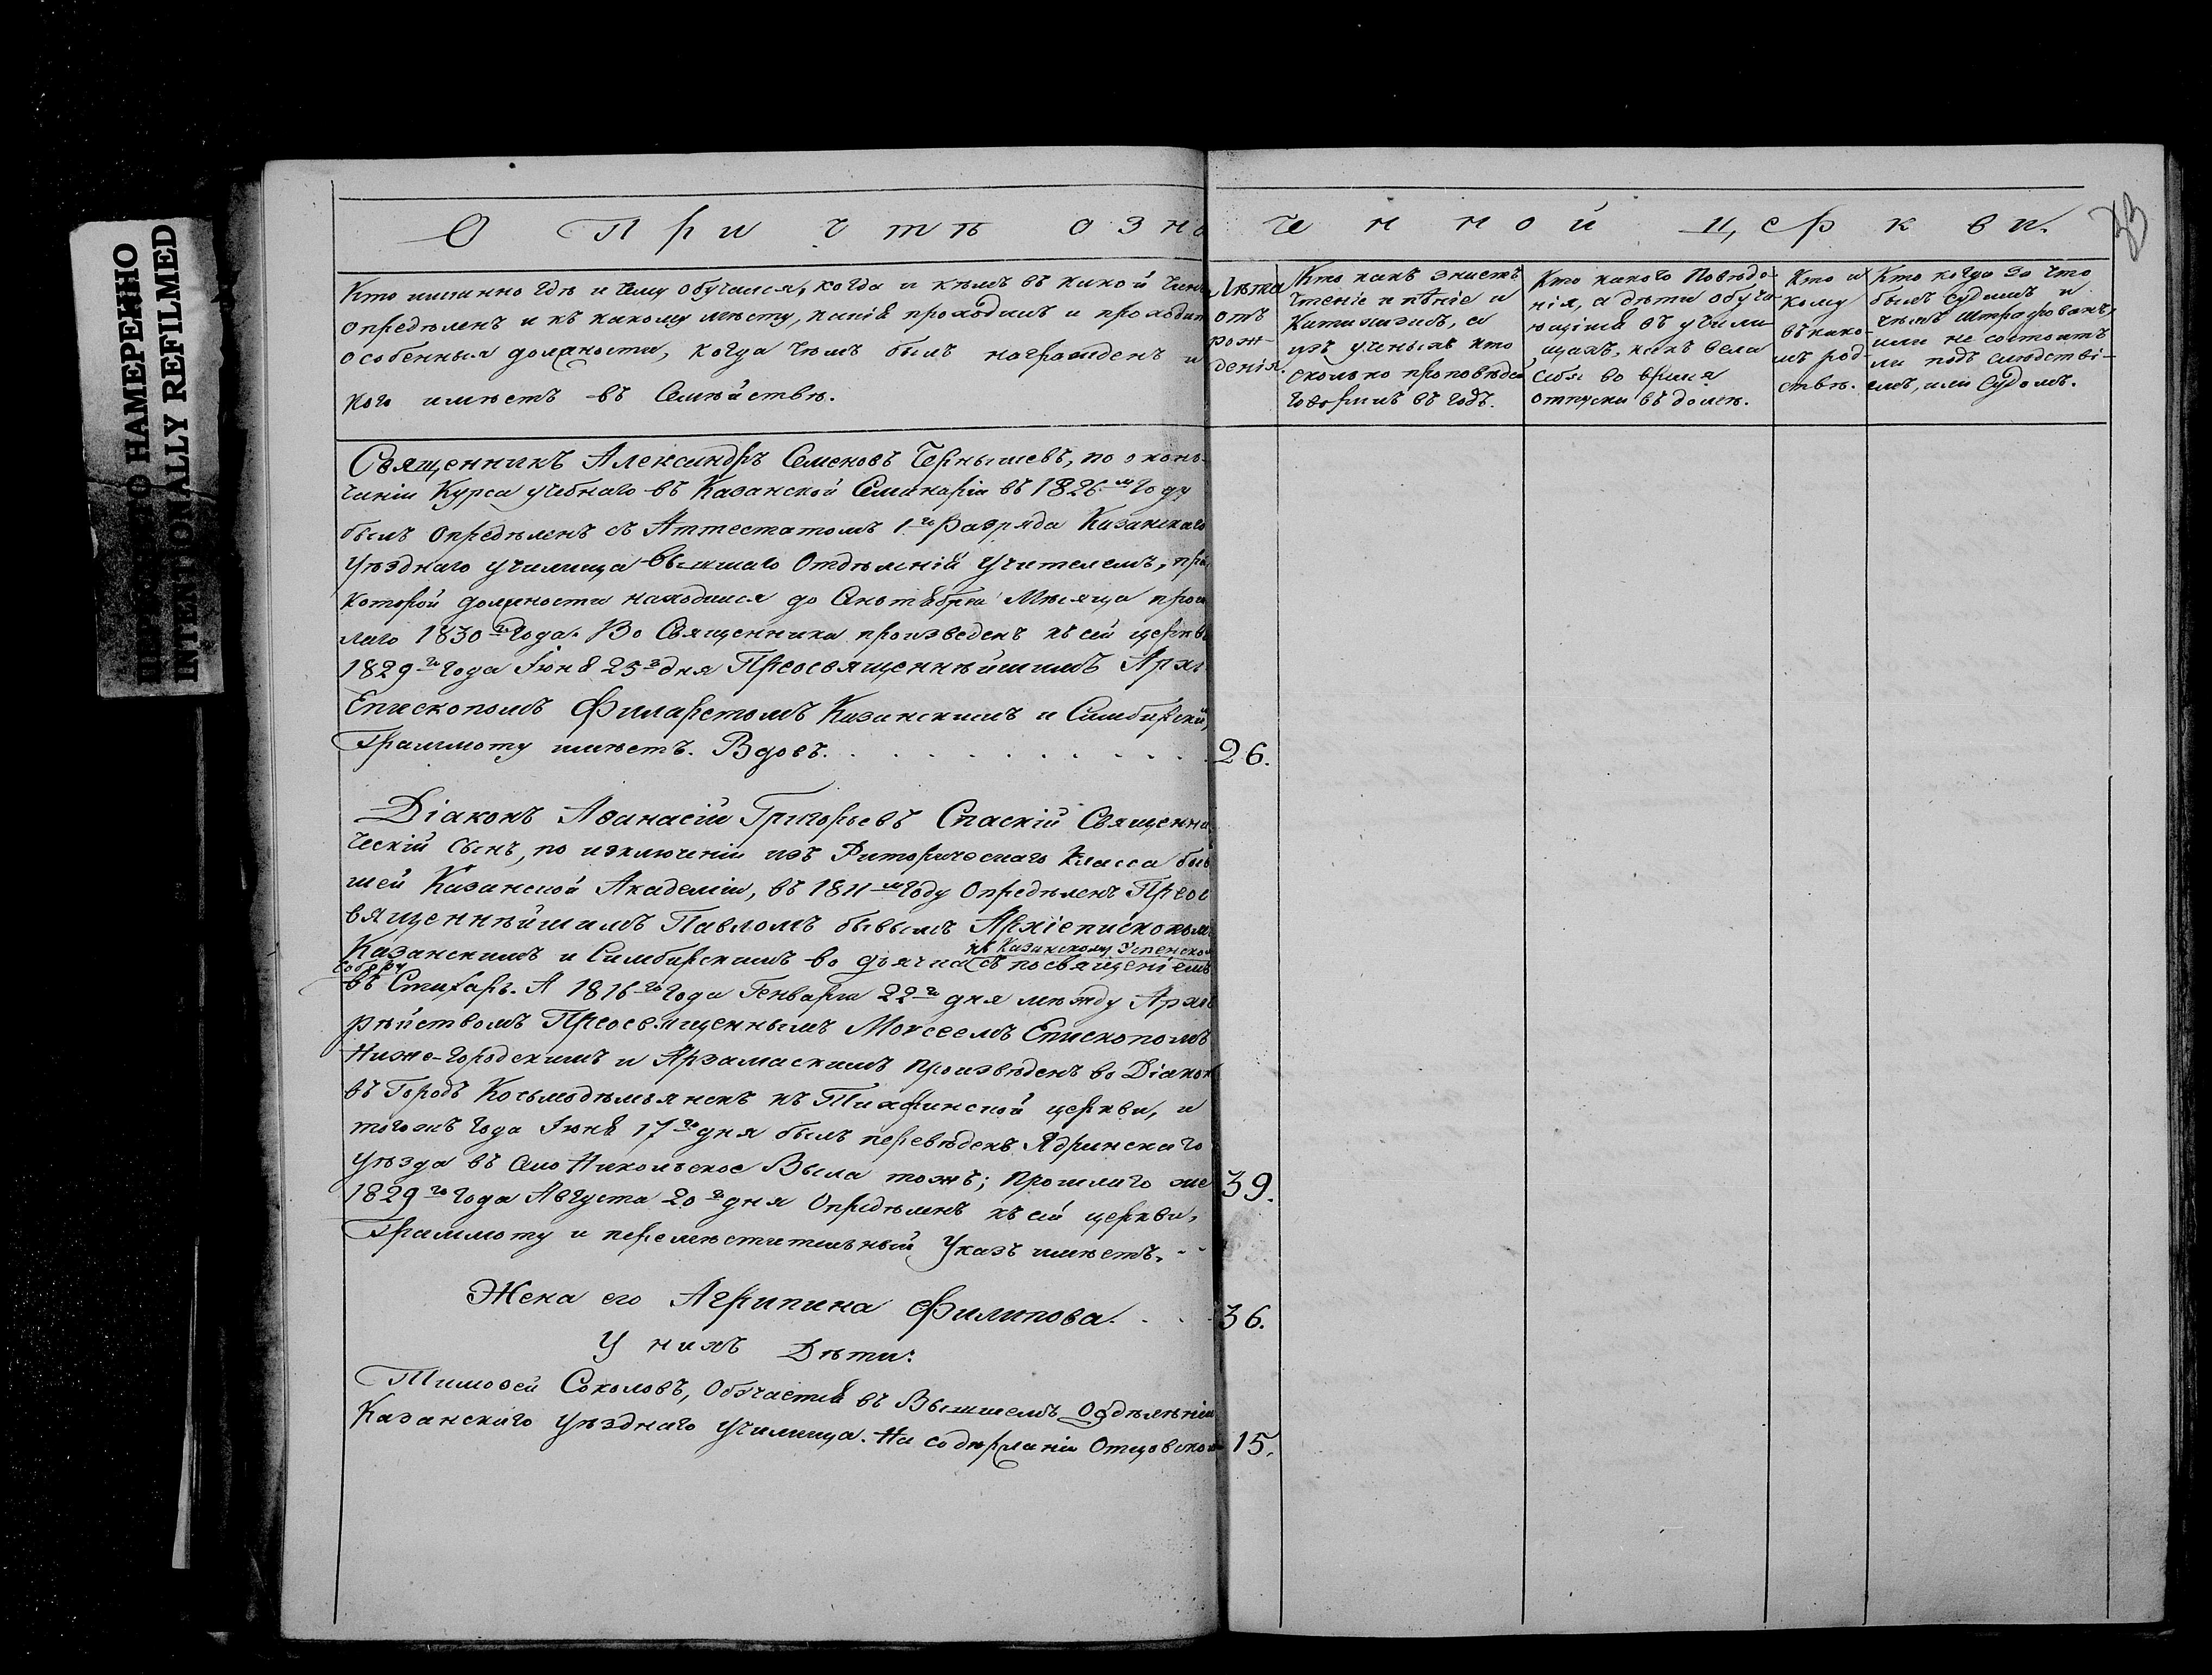 ПЕРЕСНЯТО НАМЕРЕННО
INTENTIONALLY REFILMED
О Причтѣ озна
ченной церкви.
Кто имянно гдѣ и чему обучался, когда и кѣмъ въ какой чинъ
опредѣленъ и къ какому мѣсту, какія проходилъ и проходитъ
особенныя должности, когда чѣмъ былъ награжденъ и
кого имѣетъ въ Семѣйствѣ.
Лѣта
отъ
рож-
денія.
Кто какъ знаетъ
чтеніе и пѣніе и
Катихизисъ, а
изъ ученыхъ кто
сколько проповѣдей
говорилъ въ годъ.
Кто какого Поведе-
нія, а дѣти обуча
ющіяся въ учили-
щахъ, какъ вела
себя во время
отпуски въ домъ.
Кто и
кому
въ како-
мъ род-
ствѣ.
Кто когда за что
былъ судимъ и
чѣмъ штрафованъ,
или не состоитъ
ли подъ слѣдстві-
емъ, или Судомъ.
Священникъ Александръ Семеновъ Чернышевъ, по окон-
чаніи Курса учебнаго въ Казанской Семинаріи въ 1826м году
былъ опредѣленъ съ Аттестатомъ 1го разряда Казанскаго
Уѣзднаго училища Высшаго Отдѣленія Учителемъ, при
которой должности находился до Сентября Мѣсяца прош
лаго 1830го года. Во Священника произведенъ къ сей церкви
1829го года Іюня 25го дня Преосвященнѣйшимъ Архі
Епископомъ Филаретомъ Казанскимъ и Симбирским,
Граммоту имѣетъ. Вдовъ.
26.
Діаконъ Аѳанасій Григорьевъ Спаскій Священни
ческій сынъ, по изключеніи изъ Риторическаго Класса быв
шей Казанской Академіи, въ 1811м году опредѣленъ Преос
вященнѣйшимъ Павломъ бывымъ Архіепископомъ
къ Казанскому Успенском
Казанскимъ и Симбирскимъ во дьячка съ посвященіемъ
Собору
въ Стихарь. А 1816го года Генваря 22го дня между Архіе
рѣйствомъ Преосвященнымъ Моѵсеемъ Епископомъ
Ниже-городскимъ и Арзамаскимъ произвѣденъ во Діакон
въ Городъ Косьмодемьянскъ къ Тихфинской церкви, и
тогожъ года Іюня 17го дня былъ перевѣденъ Ядринскаго
Уѣзда въ село Никольское Выла тожъ; прошлаго же
39.
1829го года Августа 20го дня Опредѣленъ къ сей церкви,
Граммоту и перемѣстительный Указъ имѣетъ.
Жена его Агрипина Филипова.
36.
У нихъ Дѣти:
Тимоѳей Соколовъ, Обучается въ Высшемъ Отдѣленіи
Казанскаго Уѣзднаго Училища. На содержаніи Отцовском
15.